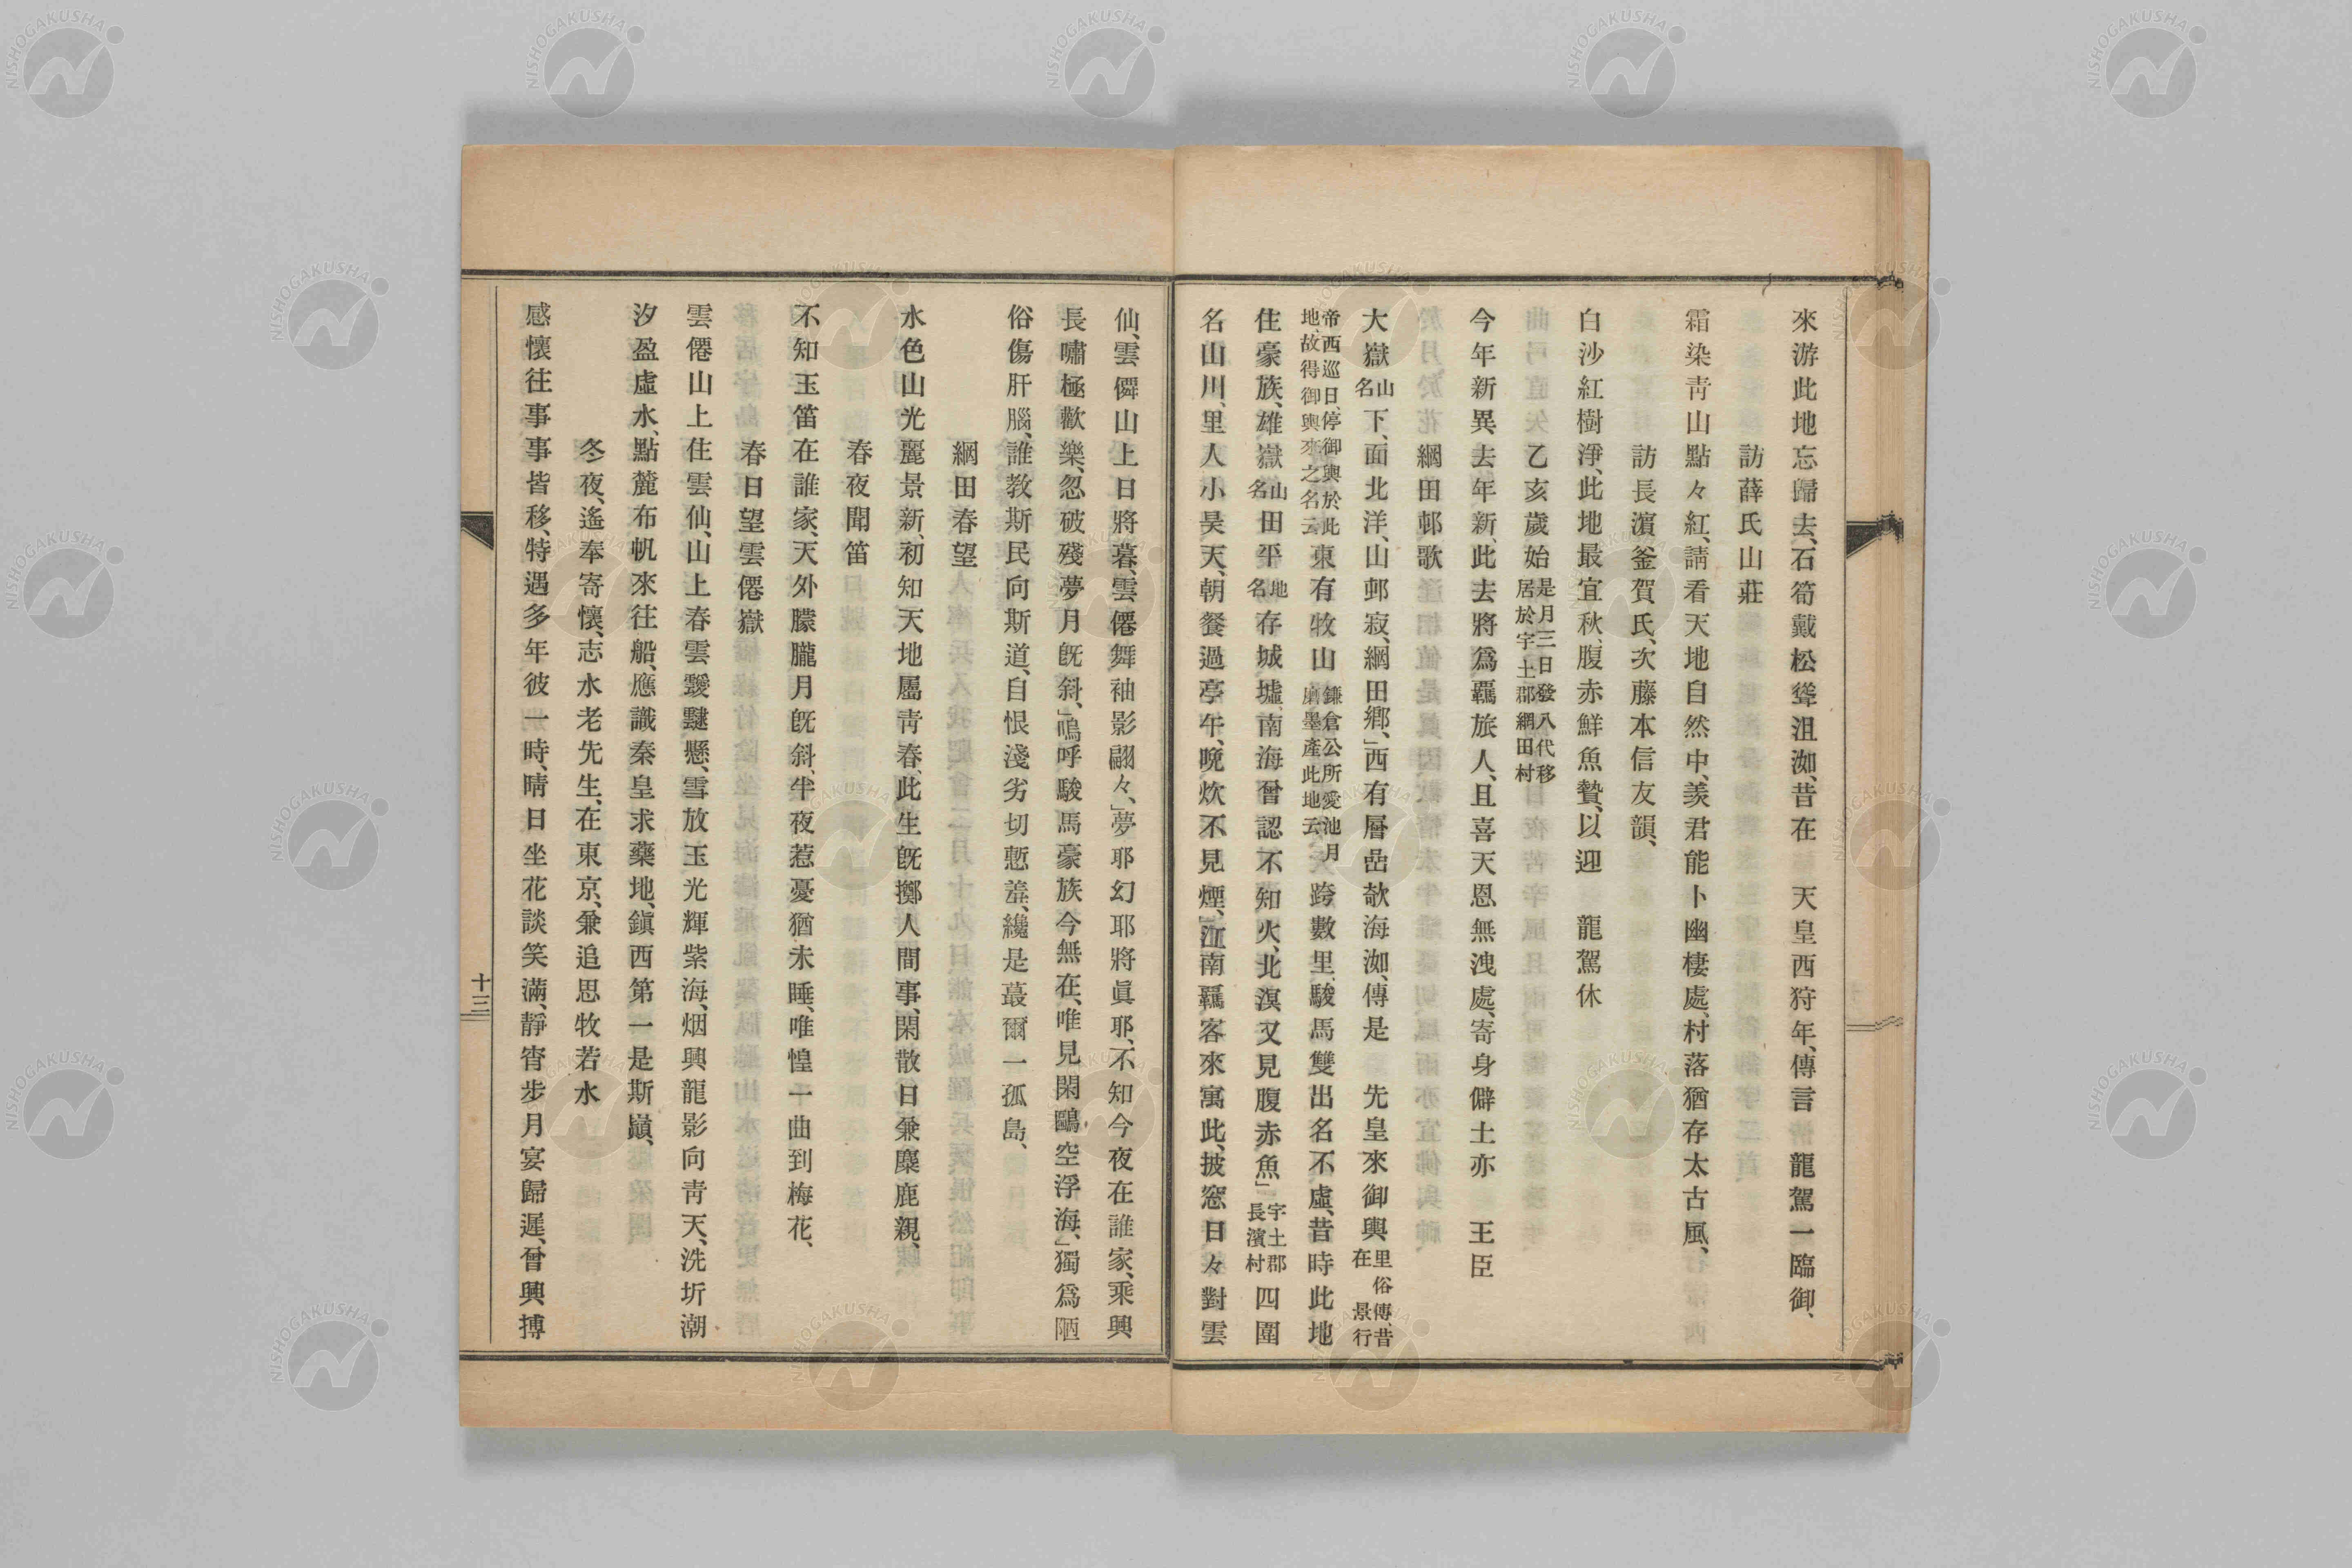 來游此地忘歸去、石筍戴松聳沮洳、昔在　天皇西狩年、傳言　龍駕一臨御、
訪薛氏山莊
霜染靑山點々紅、請看天地自然中、羨君能卜幽棲處、村落猶存太古風、
訪長濵釜賀氏、次藤本信友韻、
白沙紅樹淨、此地最宜秋、腹赤鮮魚贄、以迎　龍駕休
乙亥歲始 是月三日發八代移居於宇土郡網田村
今年新異去年新、此去將爲羈旅人、且喜天恩無洩處、寄身僻土亦　王臣
網田邨歌
大嶽 山名 下、面北洋、山邨寂、網田鄕、」西有層嵒欹海洳、傳是　先皇來御輿 里俗傳、昔在　景行
帝西巡日、停御輿於此地、故得御輿來之名云 東有牧山 鎌倉公所愛池月磨墨產此地云 跨數里、駿馬雙出名不虛、昔時此地
住豪族、雄嶽 山名 田平 地名 存城墟、南海曾認不知火、北溟又見腹赤魚」 宇土郡長濱村 四圍
名山川、里人小昊天、朝餐過亭午、晩炊不見煙、」江南羈客來寓此、披窓日々對雲
仙、雲僊山上日將暮、雲僊舞袖影翩々、」夢耶幻耶將眞耶、不知今夜在誰家、乘興
長嘯極歡樂、忽破殘夢月旣斜、」嗚呼駿馬豪族今無在、唯見閑鷗空浮海、」獨爲陋
俗傷肝腦、誰敎斯民向斯道、自恨淺劣切慙羞、纔是蕞爾一孤島、
網田春望
水色山光麗景新、初知天地屬靑春、此生旣擲人間事、閑散日兼麋鹿親、
春夜聞笛
不知玉笛在誰家、天外朦朧月旣斜、半夜惹憂猶未睡、唯惶一曲到梅花、
春日望雲僊嶽
雲僊山上住雲仙、山上春雲靉靆懸、雪放玉光輝紫海、烟興龍影向靑天、洗圻潮
汐盈虛水、點麓布帆來往船、應識秦皇求藥地、鎭西第一是斯巓、
冬夜、遙奉寄懷、志水老先生、在東京、兼追思牧若水
感懷往事事皆移、特遇多年彼一時、晴日坐花談笑滿、靜宵步月宴歸遲、曾興摶
十三
NISHOGAKUSHA